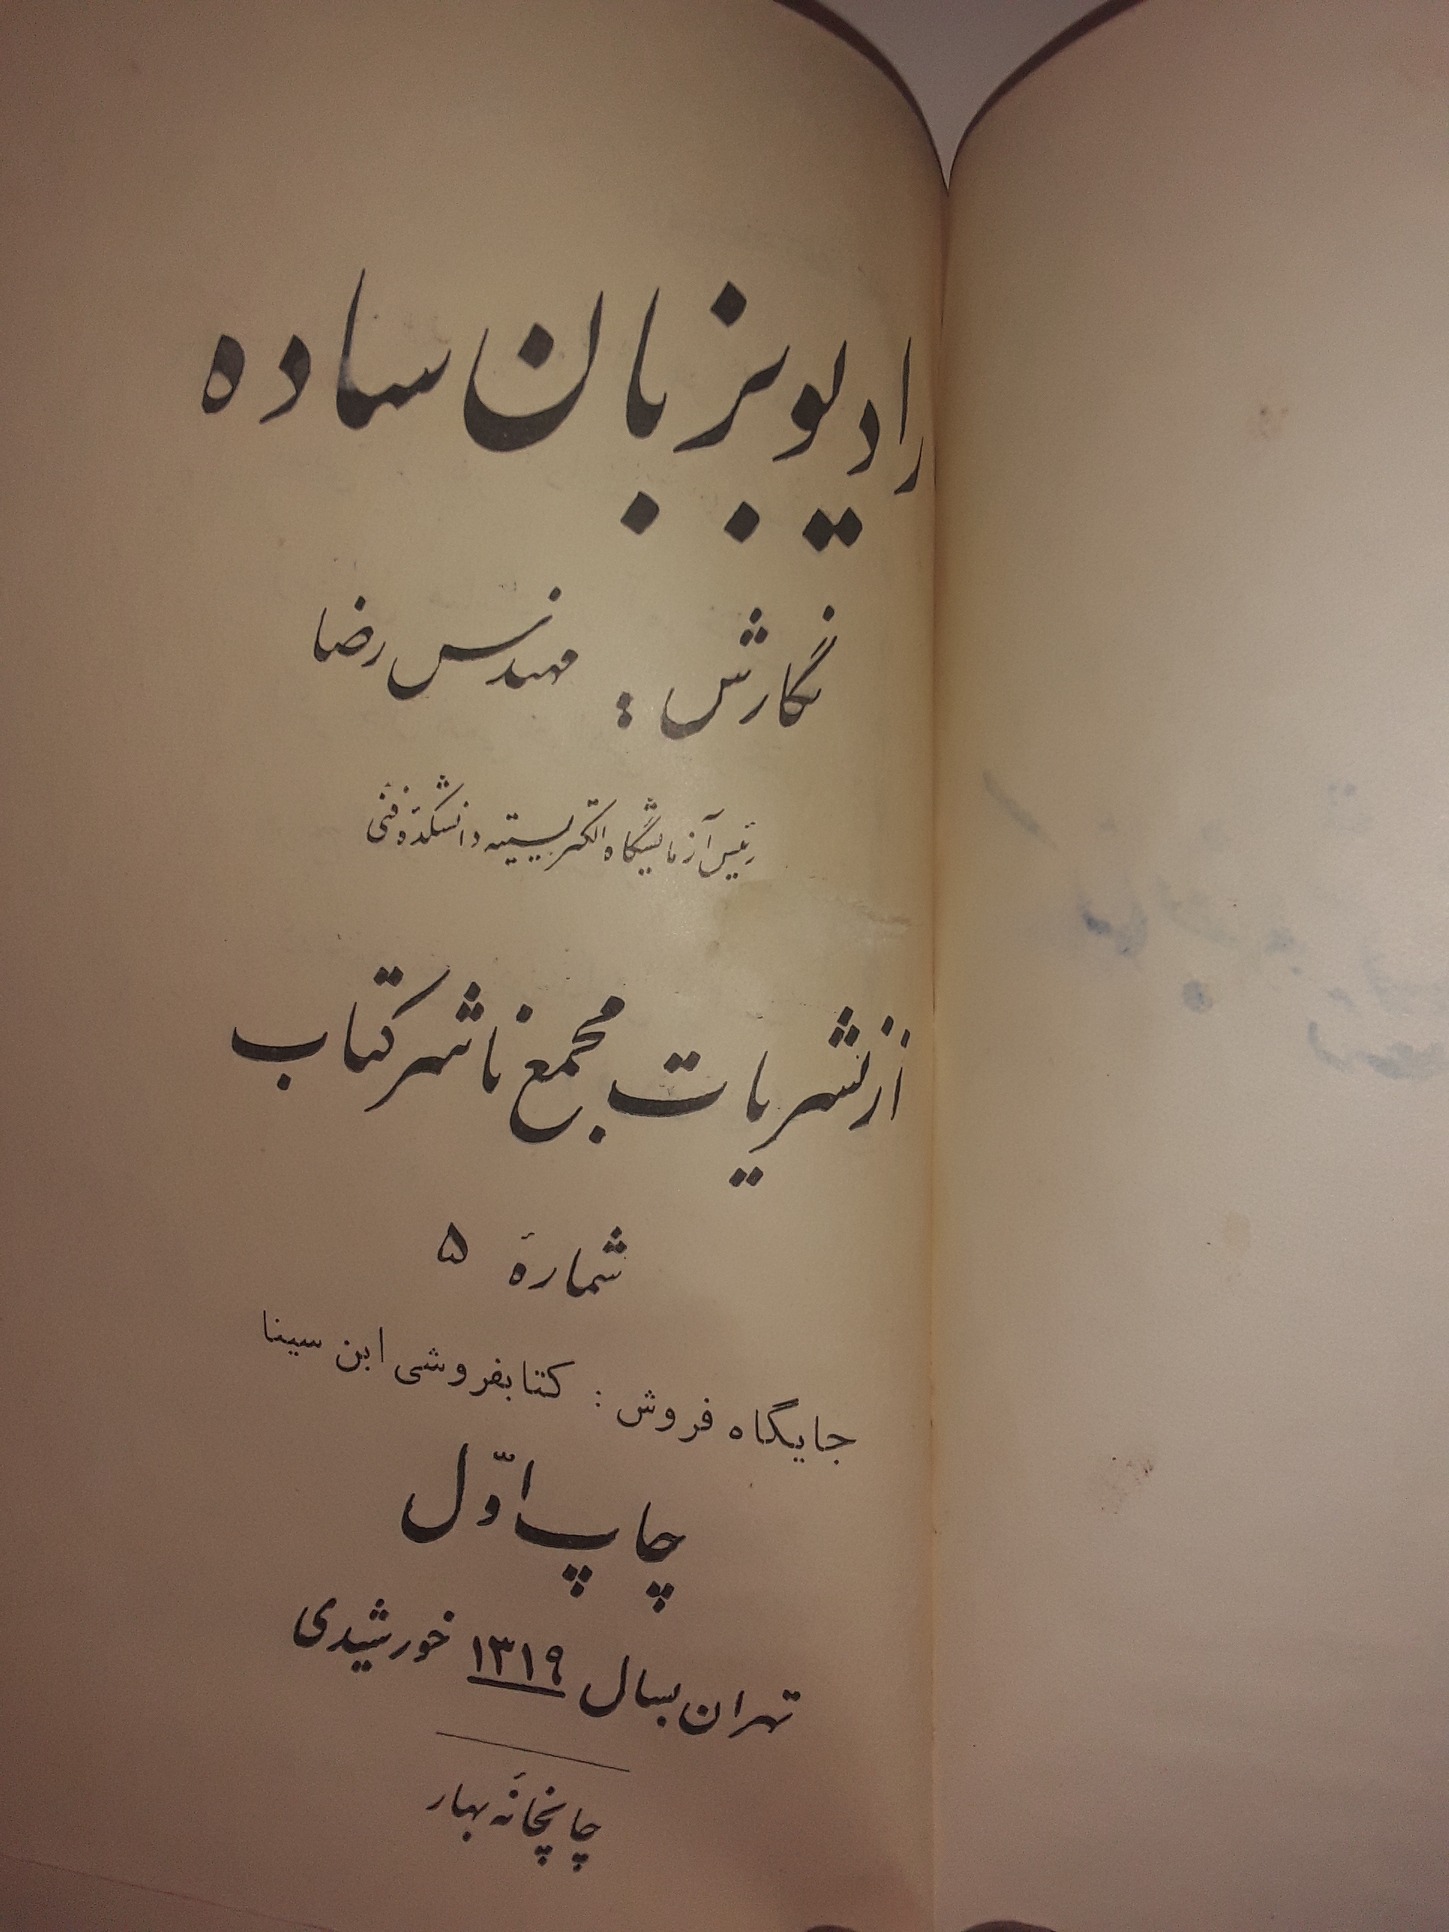 رادیو بزبان ساده
نگارش : مهندس رضا
رئیس آزمایشگاه الکتریسیته دانشکدهٔ فنی
از نشریات مجمع ناشر کتاب
شمارهٔ ۵
جایگاه فروش : کتابفروشی ابن سینا
چاپ اوّل
تهران بسال ۱۳۱۹ خورشیدی
چاپخانهٔ بهار